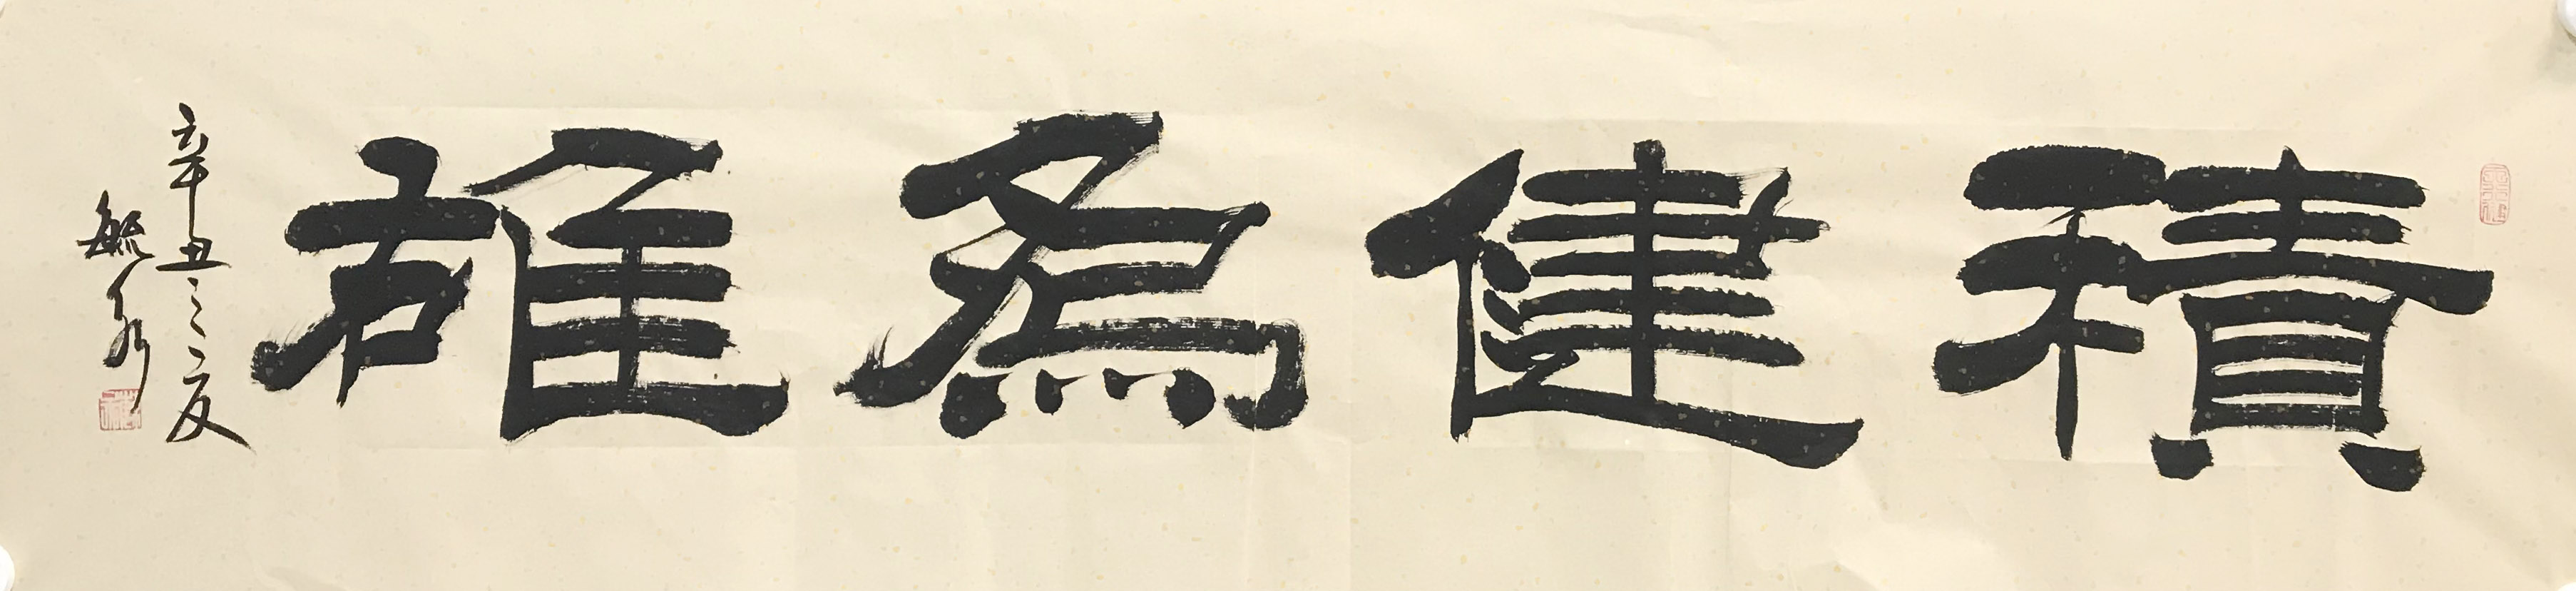 積健為雄
辛丑之夏
毓泉